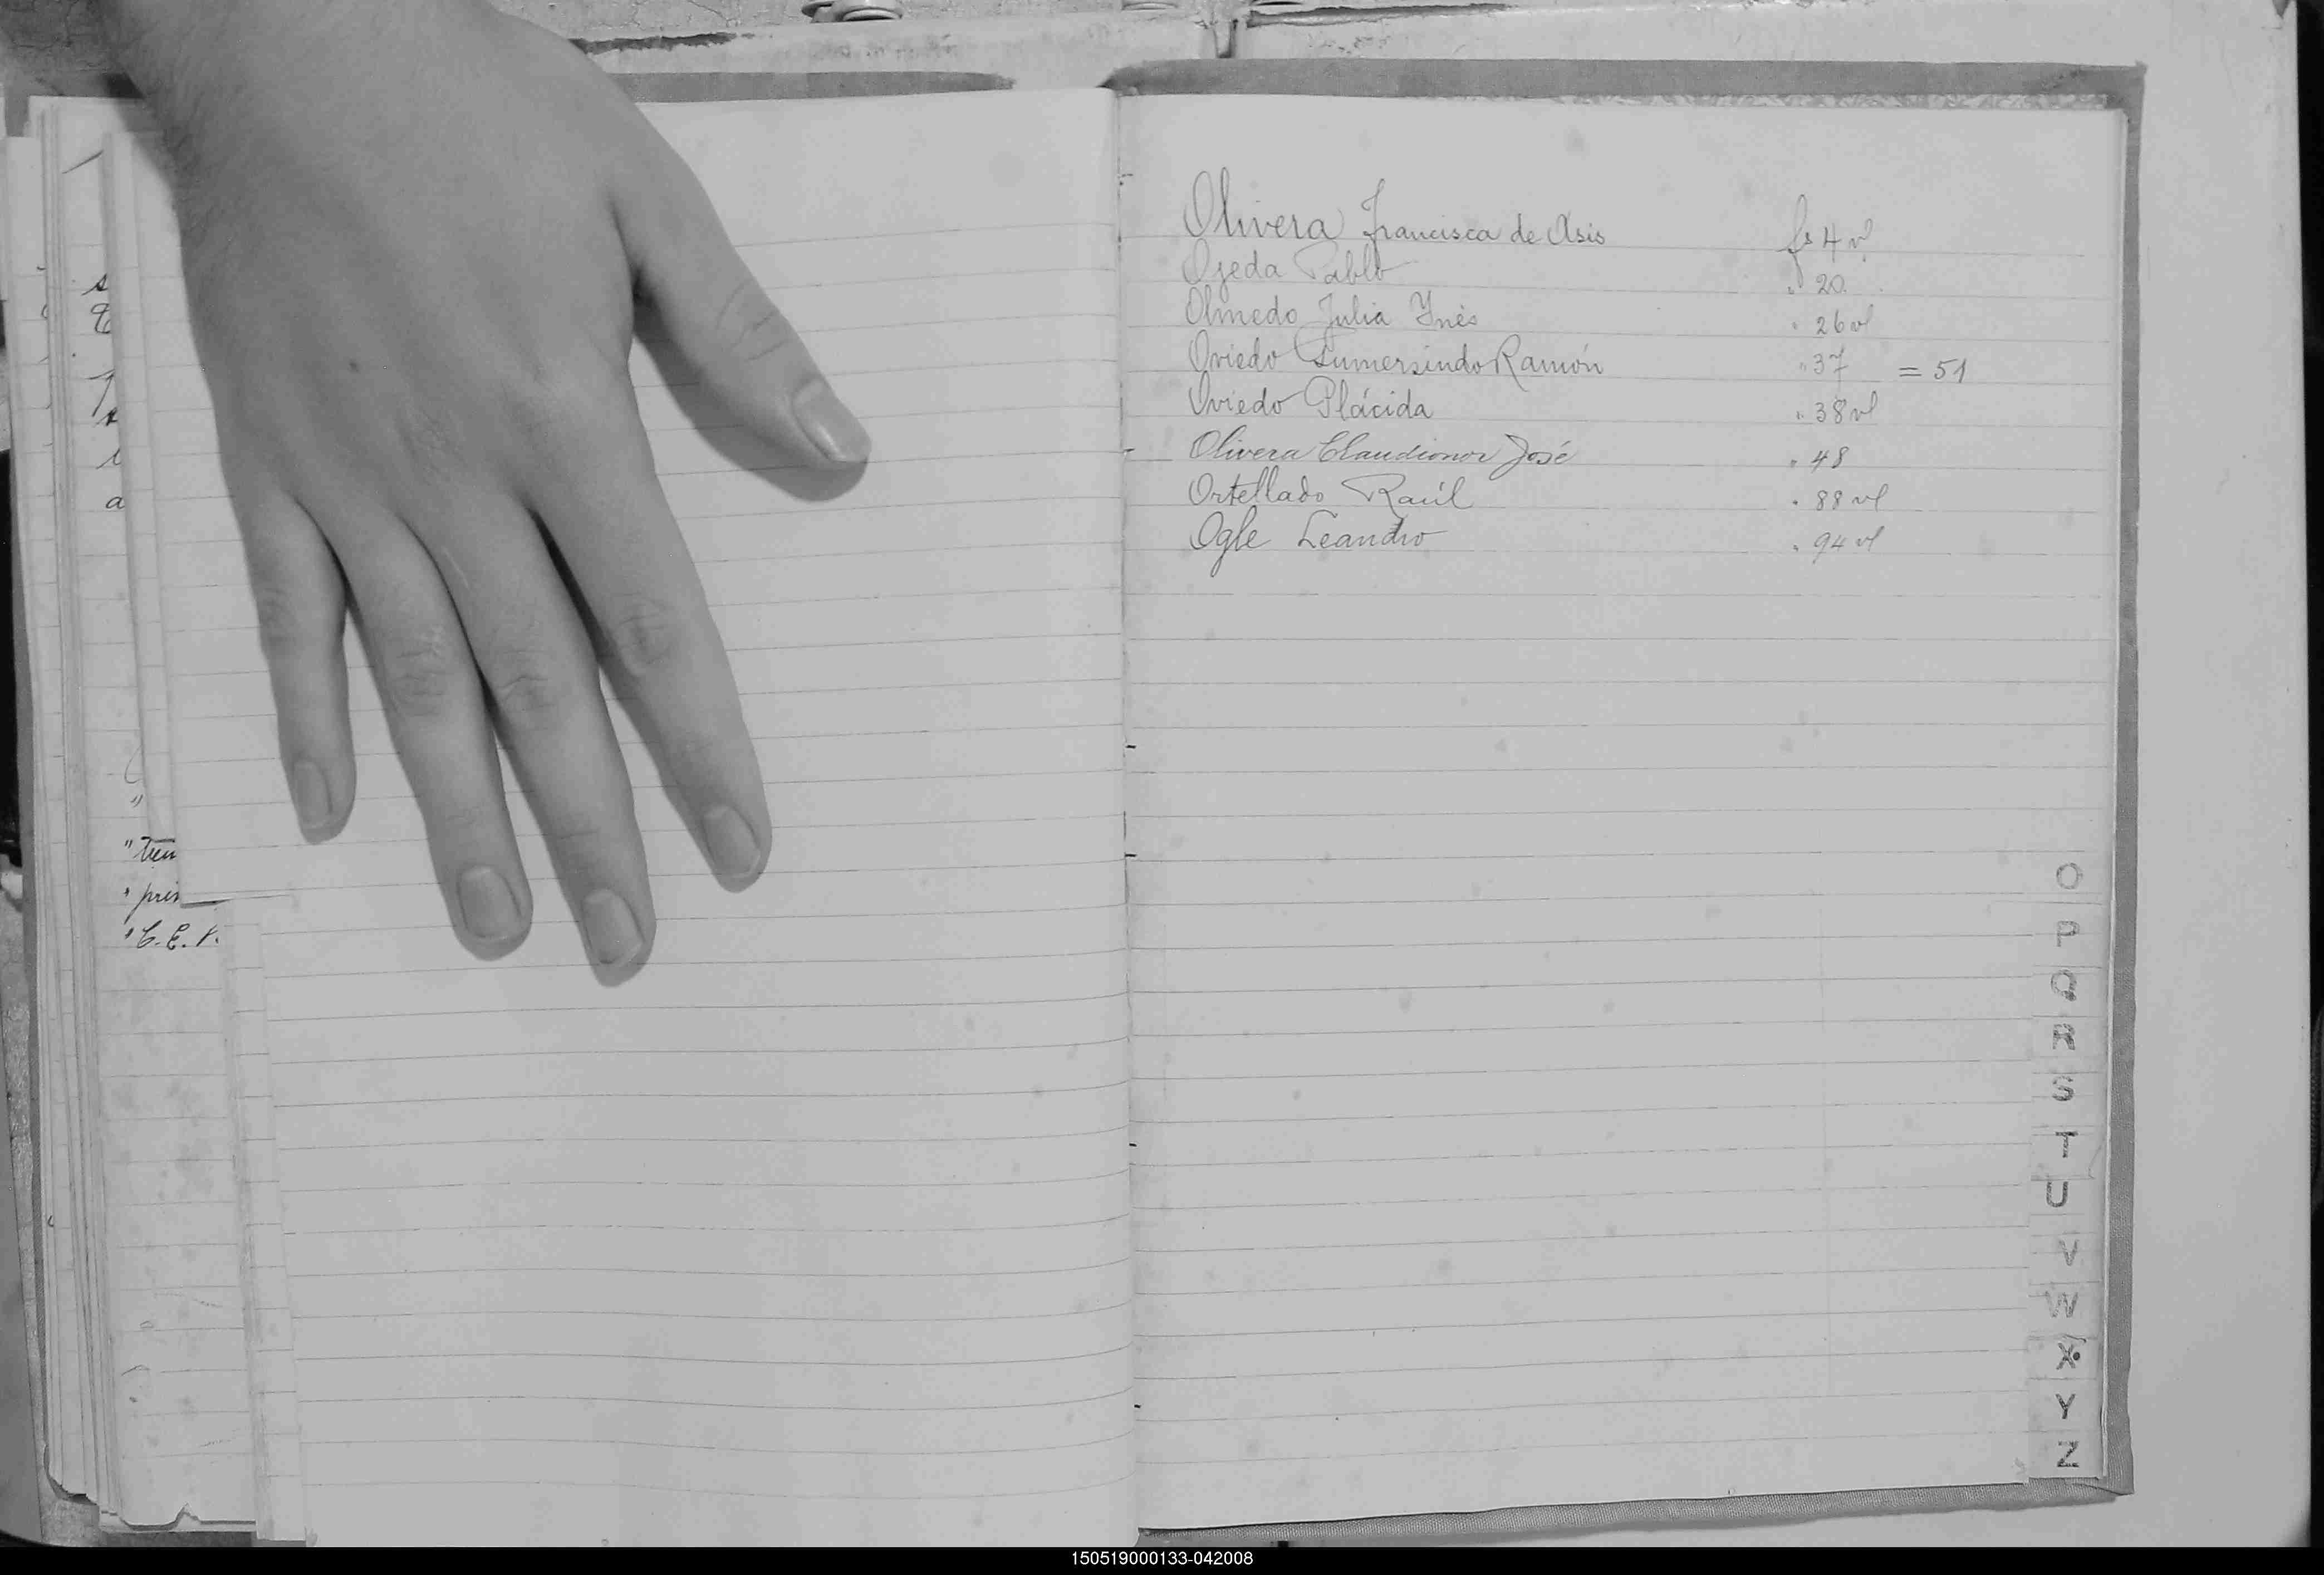 Olivera Francisca de Asis fs 4 vl
Ojeda Pablo " 20
Olmedo Julia Ynés " 26 vl
Oviedo Gumersindo Ramón " 37 = 51
Oviedo Plácida " 38 vl
Olivera Claudionor José " 48
Ortellado Raúl " 88 vl
Ogle Leandro " 94 vl
" tien
" pris
" C. E.
O
P
Q
R
S
T
U
V
W
X
Y
Z
150519000133-042008